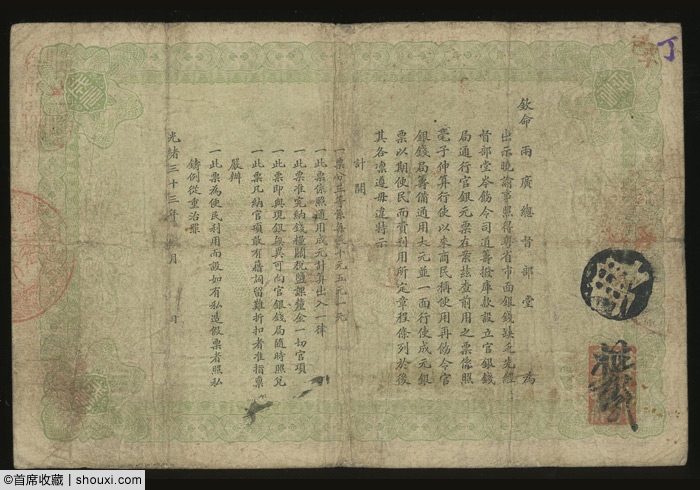 丁
欽命兩廣總督部堂為
出示曉諭事照得粵省市面銀錢缺乏先經
督部堂岑飭令司道籌撥庫款設立官銀錢
局通行官銀元票在案茲查前用之票係照
毫子伸算行使以來商民稱便再飭令官
銀錢局籌備通用大元並一面行使成元銀
票以期便民而資利用所定章程條列於後
其各凜遵毋違特示
計開
一票分三等係每張十元五元一元
一此票係照通用成元計算出入一律
一此票准完納錢糧關稅鹽課釐金一切官項
一此票即與現銀無異可向官銀錢局隨時照兌
一此票凡納官項敢有藉詞留難折扣者准指票
嚴辦
一此票為便民利用而設如有私造假票者照私
鑄例從重治罪
光緒三十三年 月 日
©首席收藏 | shouxi.com